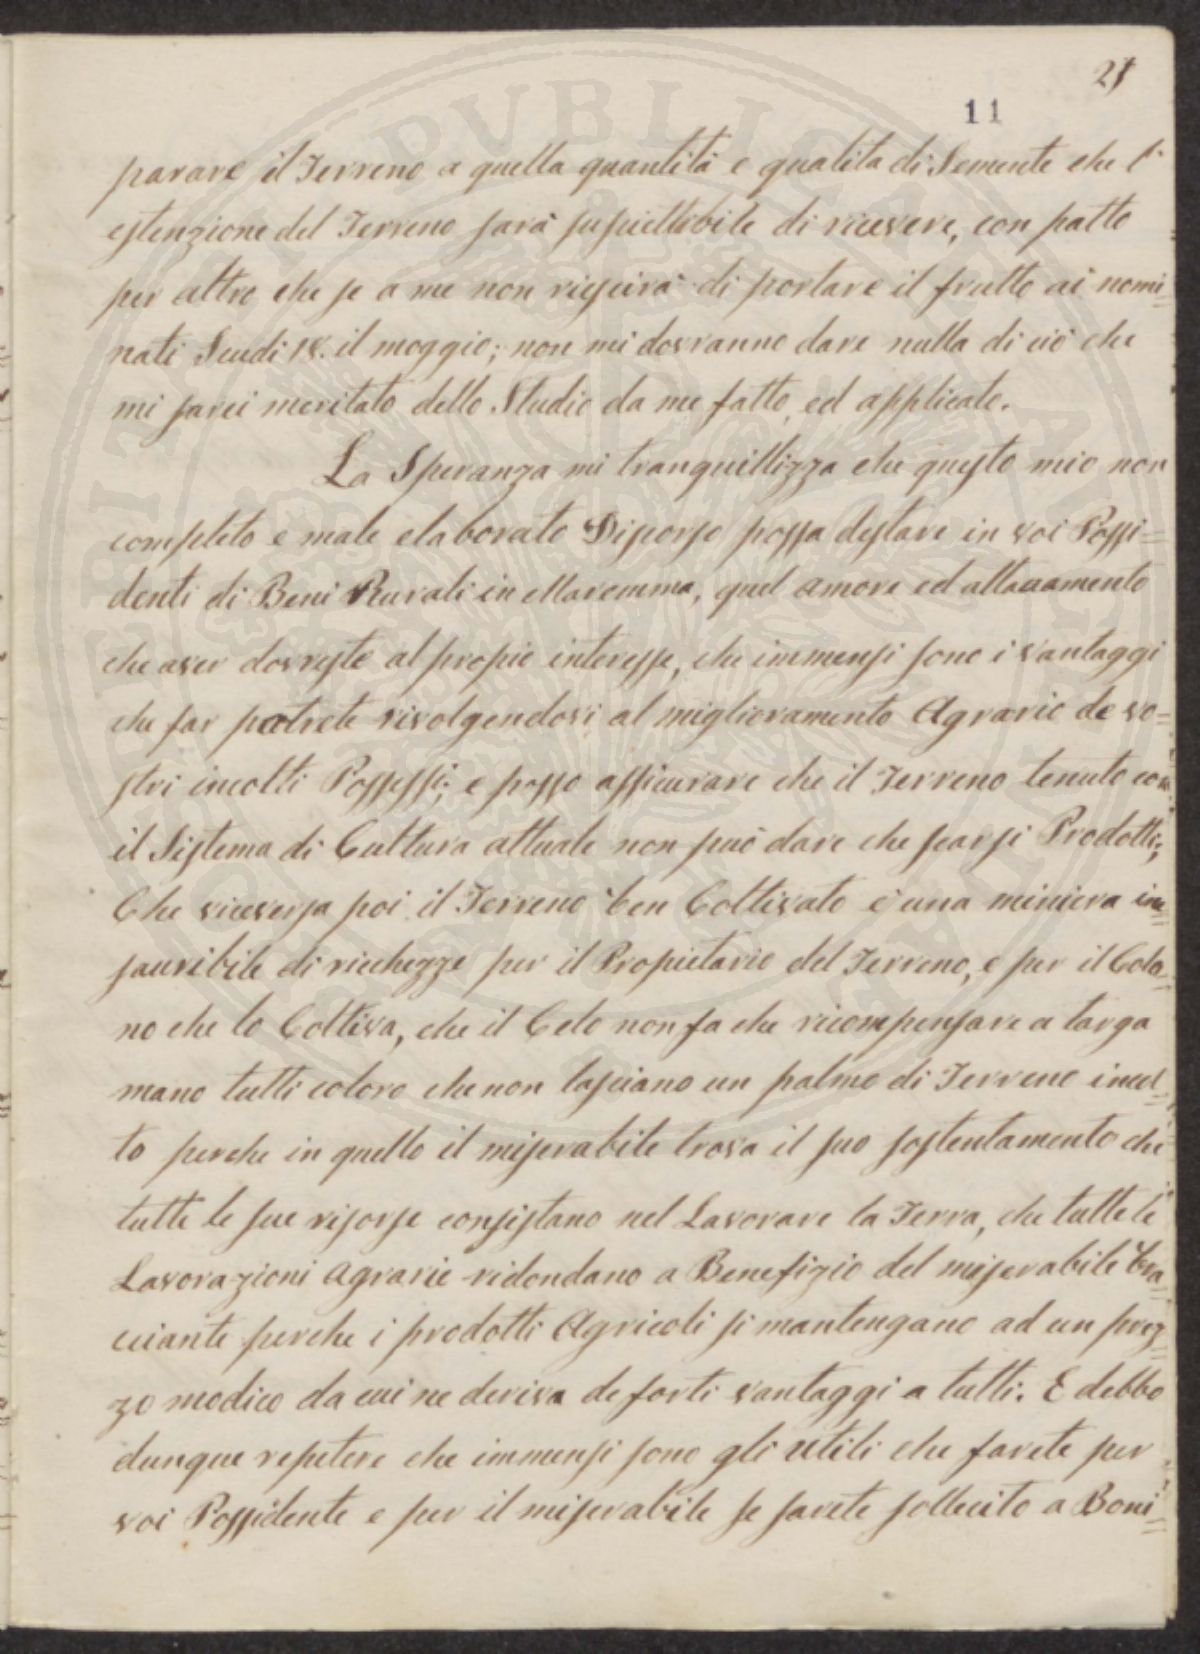 21
11
parare il Terreno a quella quantità e qualita di Semente che l'
estenzione del Terreno sarà suscettibile di ricevere, con patto
per altro che se a me non riescirà di portare il frutto ai nomi=
nati Scudi 18. il moggio; non mi dovranno dare nulla di ciò che
mi sarei meritato dello Studio da me fatto, ed applicato.
La Speranza mi tranquillizza che questo mio non
completo e male elaborato Discorso possa destare in voi Possi=
denti di Beni Rurali in Maremma, quel amore ed attaccamento
che aver dovreste al propio interesse, che immensi sono i vantaggi
che far potrete rivolgendovi al miglioramento Agrario de vo=
stri incolti Possessi; e posso assicurare che il Terreno tenuto con
il Sistema di Cultura attuale non può dare che scarsi Prodotti;
Che viceversa poi il Terreno ben Coltivato è una miniera ine=
sauribile di ricchezze per il Propietario del Terreno, e per il Colo=
no che lo Coltiva, che il Celo non fa che ricompensare a larga
mano tutti coloro che non lasciano un palmo di Terreno incol=
to perche in quello il miserabile trova il suo sostentamento che
tutte le sue risorse consistano nel Lavorare la Terra, che tutte le
Lavorazioni Agrarie ridondano a Benefizio del miserabile bra=
ciante perche i prodotti Agricoli si mantengano ad un prez=
zo modico da cui ne deriva de forti vantaggi a tutti. E debbo
dunque repetere che immensi sono gli utili che farete per
voi Possidente e per il miserabile se sarete sollecito a Boni=
PUBLICAE